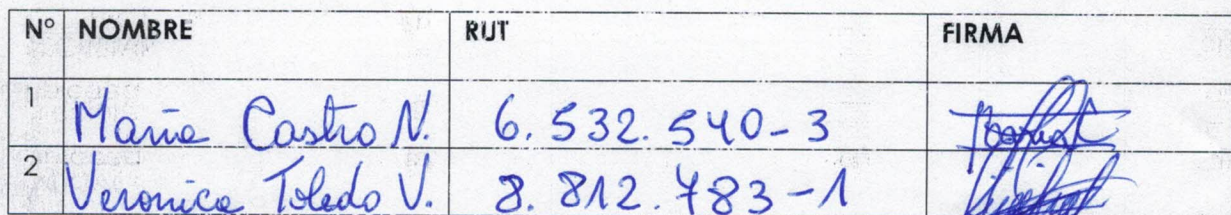 N° NOMBRE RUT FIRMA
1 Maria Castro N. 6.532.540-3
2 Veronica Toledo V. 8.812.783-1